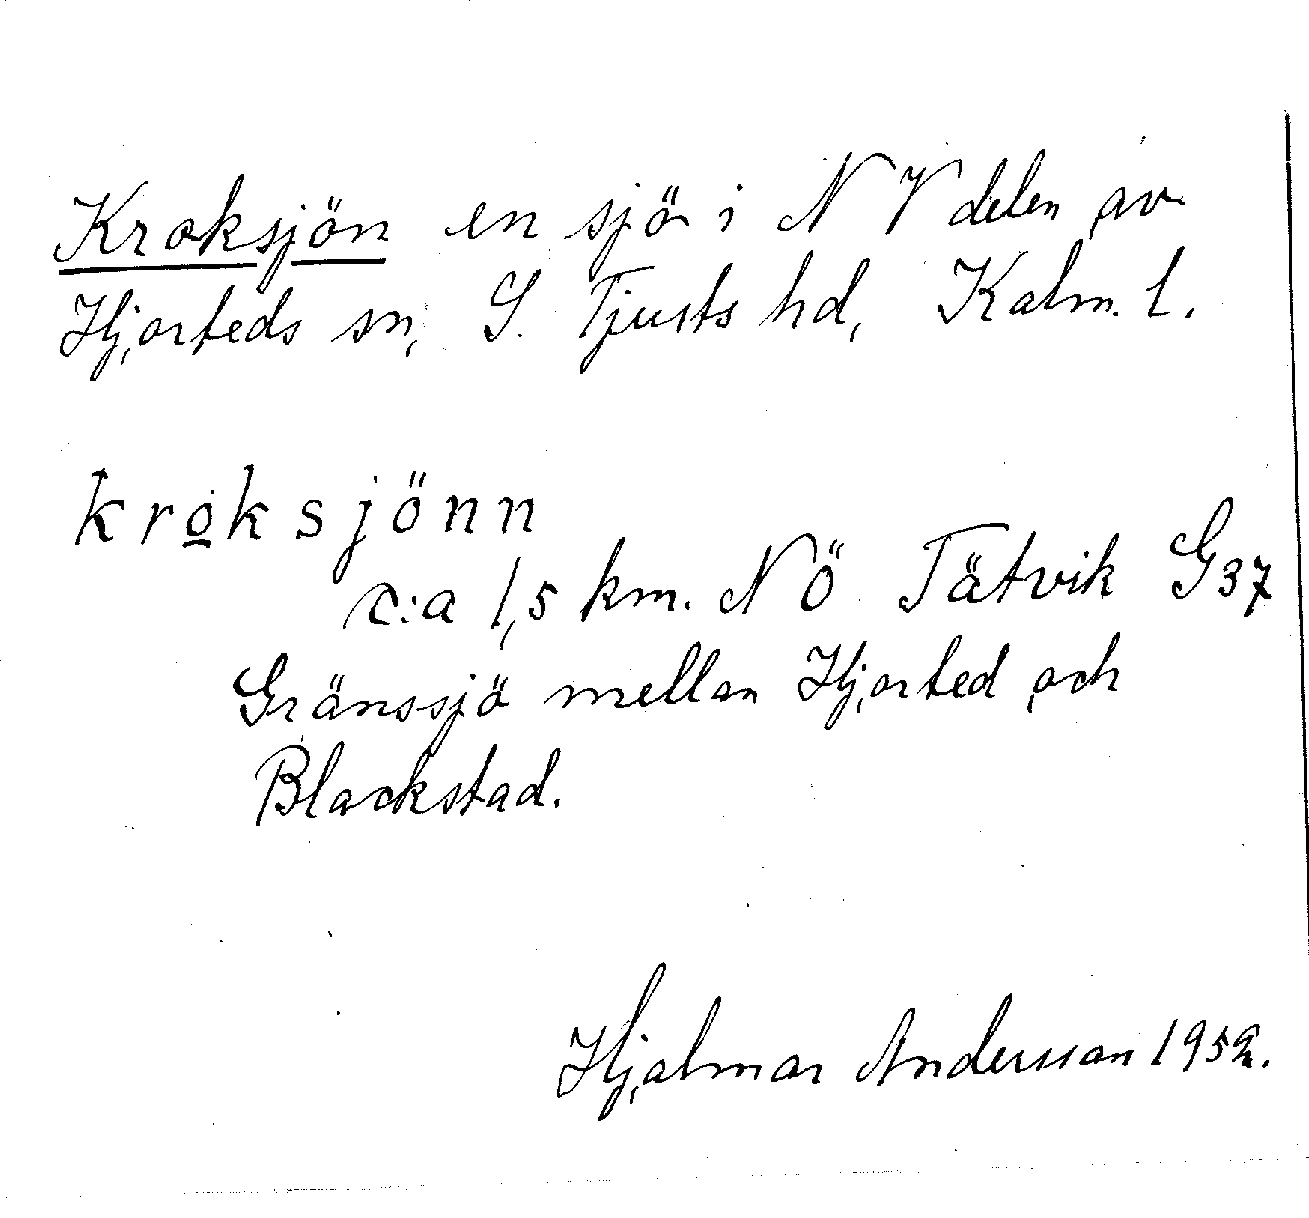 Kroksjön en sjö i NV delen av
Hjorteds sn, S. Tjusts hd, Kalm. l.
kroksjönn
c:a 1,5 km. NÖ Tätvik G37
Gränssjö mellan Hjorted och
Blackstad.
Hjalmar Andersson 1952.